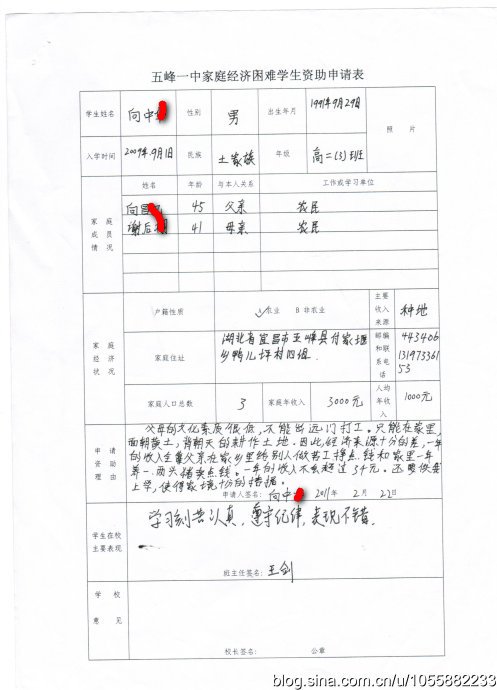 五峰一中家庭经济困难学生资助申请表
学生姓名 向中 性别 男 出生年月 1991年9月29日 照片
入学时间 2009年9月1日 民族 土家族 年级 高二(3)班
家庭成员情况 姓名 年龄 与本人关系 工作或学习单位
向昌 45 父亲 农民
谢后 41 母亲 农民
家庭经济状况 户籍性质 √农业 B 非农业 主要收入来源 种地
家庭住址 湖北省宜昌市五峰县付家堰乡鸭儿坪村四组. 邮编和联系电话 443406 13197336153
家庭人口总数 3 家庭年收入 3000元 人均年收入 1000元
申请资助理由
父母的文化素质很低,不能出远门打工。只能在家里,
面朝黄土,背朝天的耕作土地。因此,经济来源十分的差,一年
的收入全靠父亲在家乡里给别人做苦工挣点钱和家里一年
养一两头猪卖点钱。一年的收入不会超过3千元。还要供我
上学,使得家境十分的拮据。
申请人签名:向中 2011年 2月 22日
学生在校主要表现 学习刻苦认真,遵守纪律,表现不错.
班主任签名:王剑
学校意见
校长签名: 公章
blog.sina.com.cn/u/1055882233